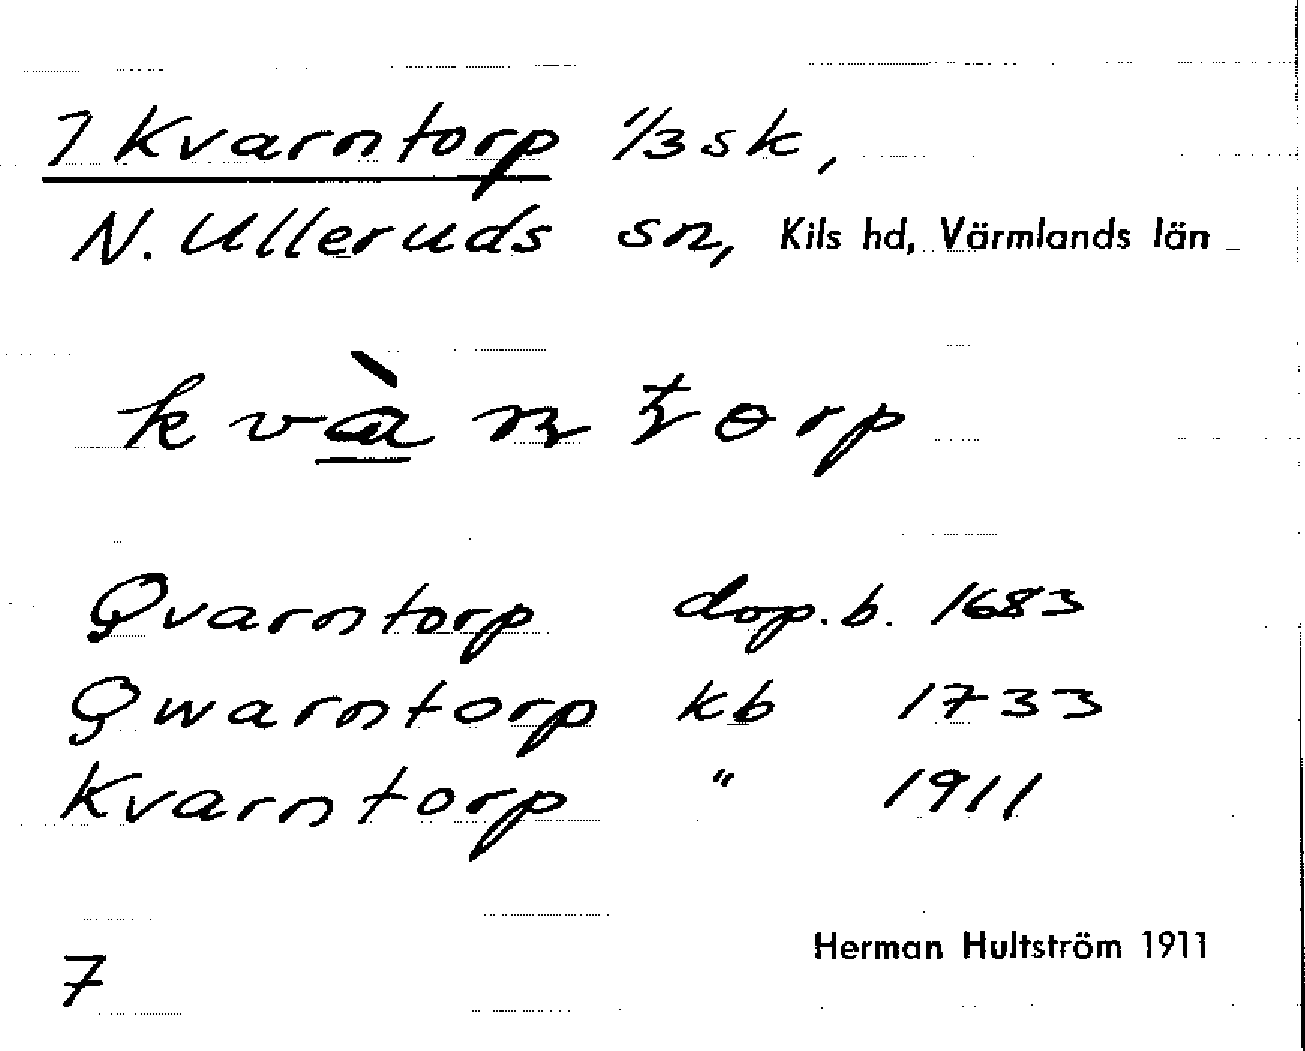 7 Kvarntorp 1/3 sk,
N. Ulleruds sn, Kils hd, Värmlands län
Qvarntorp dop.b. 1683
Qwarntorp kb 1733
Kvarntorp " 1911
Herman Hultström 1911
7